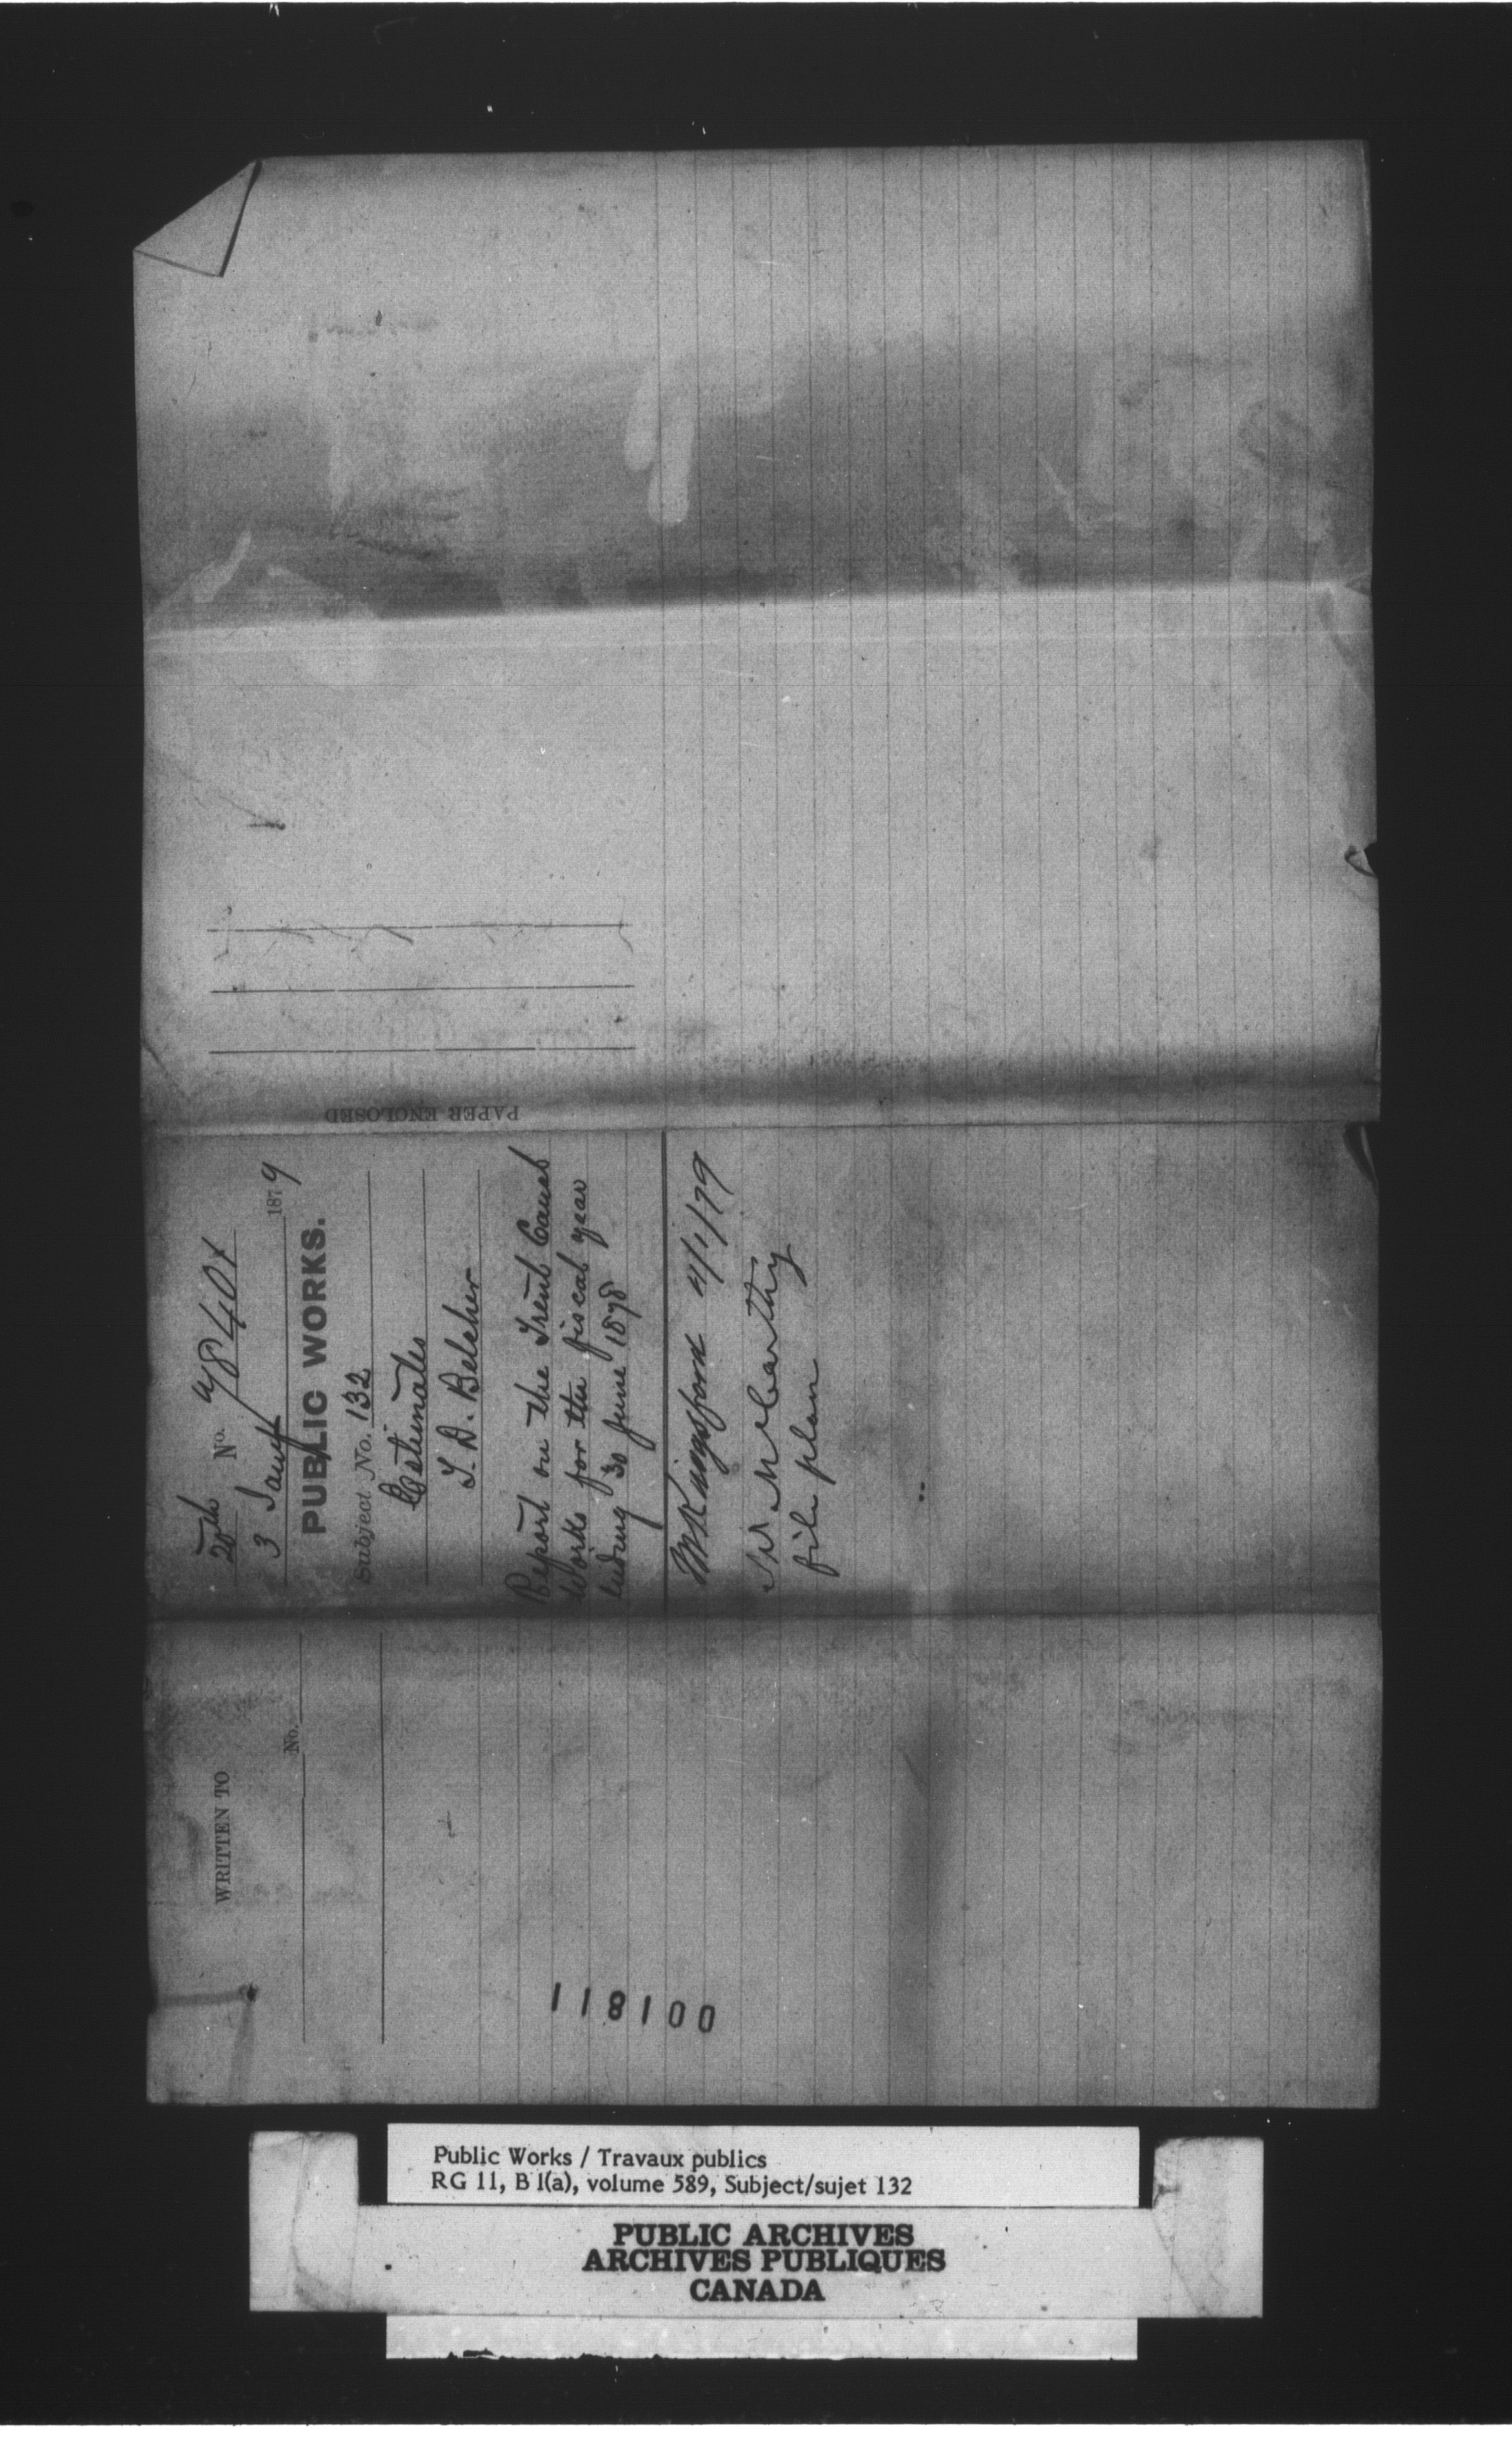 PAPER ENCLOSED
20th No. 78401
3 Jany 1879
PUBLIC WORKS.
Subject No. 132
Estimates
T. D. Belcher
Report on the Trent Canal
Works for the fiscal year
ending 30 June 1878
Mr Kingsford 4/1/79
Mr McCarthy
file plan
WRITTEN TO
No.
118100
Public Works / Travaux publics
RG 11, B 1(a), volume 589, Subject/sujet 132
PUBLIC ARCHIVES
ARCHIVES PUBLIQUES
CANADA